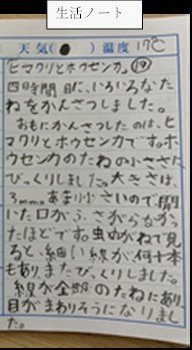 生活ノート
天気(●)温度 17℃
「ヒマワリとホウセンカ」⑲
四時間目に、いろいろなた
ねをかんさつしました。
おもにかんさつしたのは、ヒ
マワリとホウセンカです。ホウ
センカのたねの小ささに
びっくりしました。大きさは、
3mm。あまり小さいので開
いた口がふさがらなかっ
たほどです。虫めがねで見
ると、細い線が何十本
もあり、またびっくりしました。
線が全部のたねにあり
目がまわりそうになりまし
た。